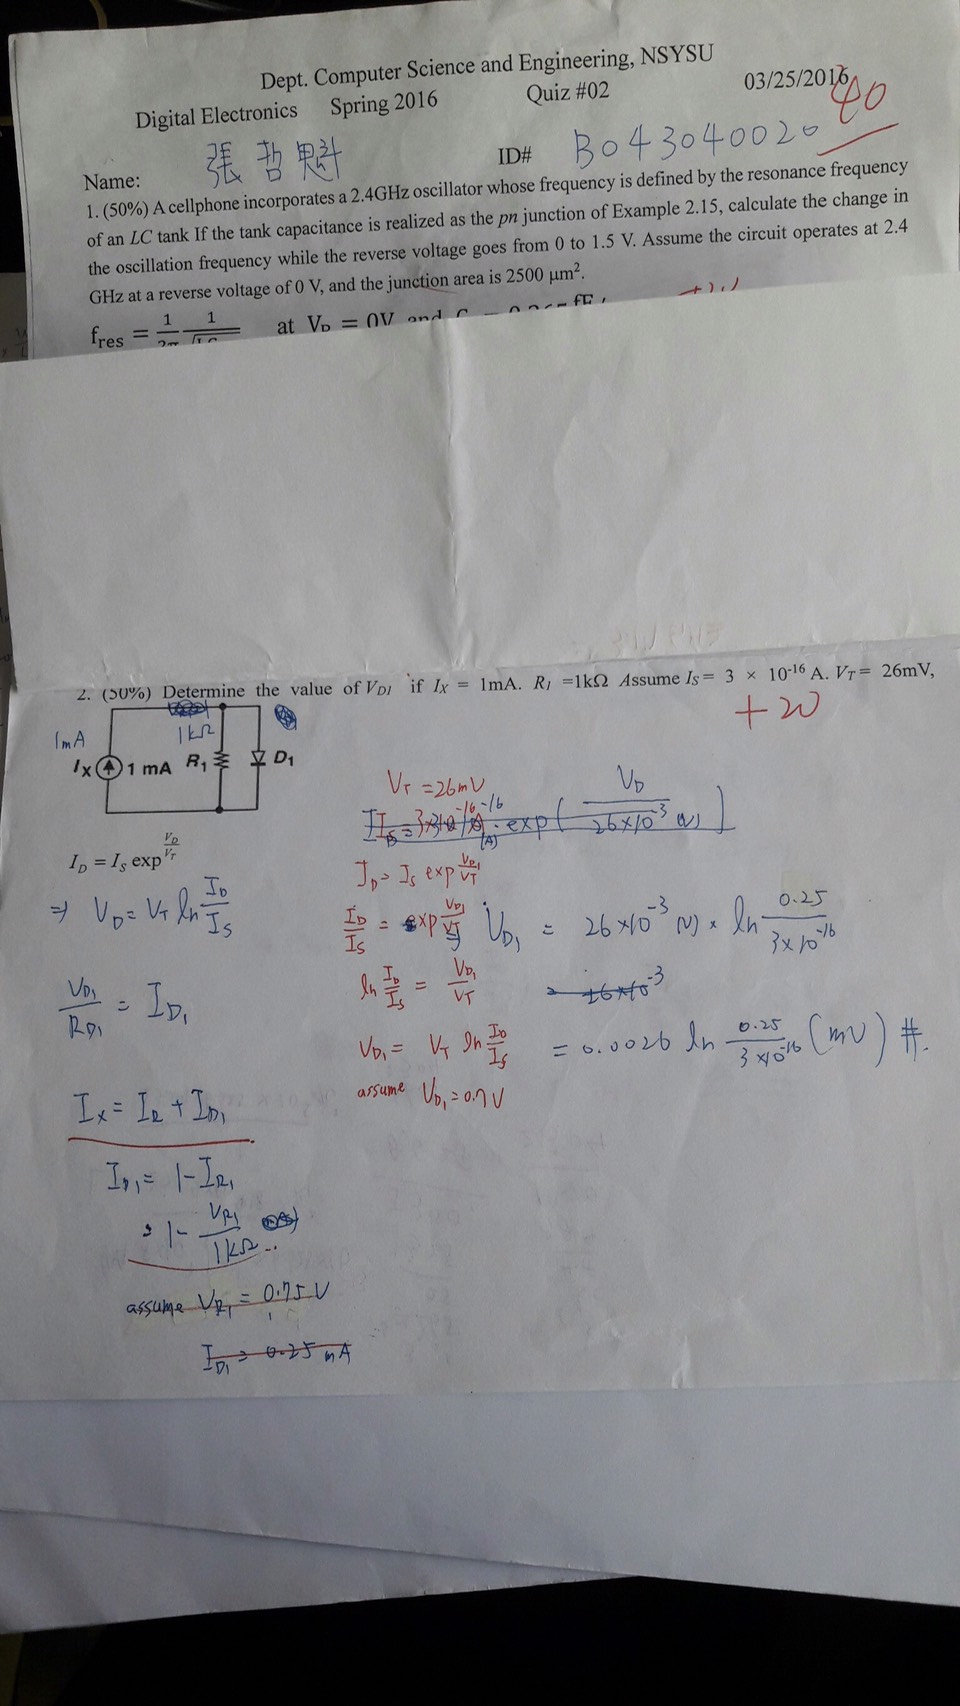 Dept. Computer Science and Engineering, NSYSU
Digital Electronics Spring 2016 Quiz #02 03/25/2016
40
Name: 張哲魁 ID# B043040020
1. (50%) A cellphone incorporates a 2.4GHz oscillator whose frequency is defined by the resonance frequency
of an LC tank If the tank capacitance is realized as the pn junction of Example 2.15, calculate the change in
the oscillation frequency while the reverse voltage goes from 0 to 1.5 V. Assume the circuit operates at 2.4
GHz at a reverse voltage of 0 V, and the junction area is 2500 μm².
f_res = 1/2π 1/√LC at V_D = 0V and
2. (50%) Determine the value of V_D1 if I_X = 1mA. R_1 =1kΩ Assume I_S = 3 × 10^-16 A. V_T = 26mV,
+20
1kΩ
1mA
I_X 1 mA R_1 D_1
I_D = I_S exp^(V_D/V_T)
⇒ V_D = V_T ln I_D/I_S
V_D1/R_D1 = I_D1
I_X = I_R + I_D1
I_D1 = 1 - I_R1
= 1 - V_R1/1kΩ
assume V_R1 = 0.75 V
I_D1 = 0.25 mA
V_T = 26mV
exp( V_D/26×10^-3 (V) ]
I_D = I_S exp V_D1/V_T
I_D/I_S = exp V_D1/V_T
ln I_D/I_S = V_D1/V_T
V_D1 = V_T ln I_D/I_S
assume V_D1 = 0.7 V
V_D1 = 26×10^-3 (V) × ln 0.25/3×10^-16
= 26×10^-3
= 0.0026 ln 0.25/3×10^-16 (mV) #.